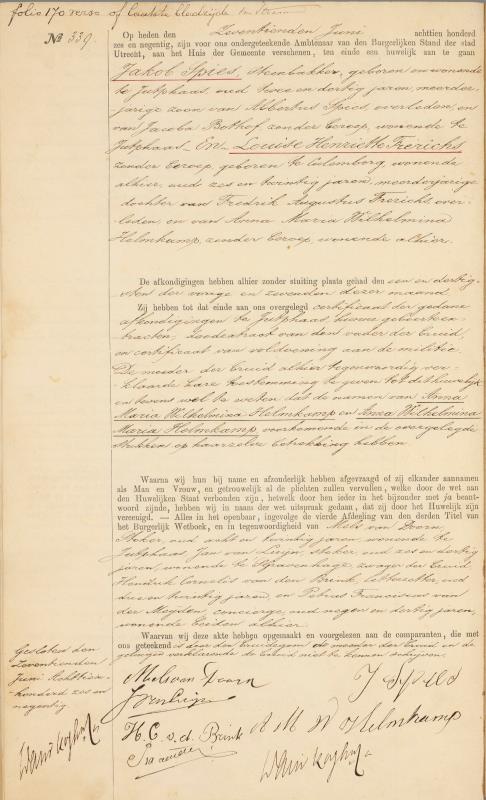 folio 170 verso of laatste bladzijde
No 339.
Op heden den Zeventienden Juni achttien honderd
zes en negentig, zijn voor ons ondergeteekende Ambtenaar van den Burgerlijken Stand der stad
Utrecht, aan het Huis der Gemeente verschenen, ten einde een huwelijk aan te gaan
Jakob Spies, steenbakker, geboren en wonende
te Jutphaas, oud twee en dertig jaren, meerder-
jarige zoon van Albertus Spies, overleden, en
van Jacoba Bothof, zonder beroep, wonende te
Jutphaas. En Louise Henriette Frerichs
zonder beroep, geboren te Culemborg, wonende
alhier, oud zes en twintig jaren, meerderjarige
dochter van Fredrik Augustus Frerichs, over-
leden, en van Anna Maria Wilhelmina
Helmkamp, zonder beroep, wonende alhier.
De afkondigingen hebben alhier zonder stuiting plaats gehad den een en dertig-
sten der vorige en zevenden dezer maand
Zij hebben tot dat einde aan ons overgelegd certificaat der gedane
afkondigingen te Jutphaas, hunne geboorteex-
tracten, doodextract van den vader der bruid,
en certificaat van voldoening aan de militie.
De moeder der bruid alhier tegenwoordig ver-
klaarde hare toestemming te geven tot dit huwelijk
en tevens wel te weten dat de namen van Anna
Maria Wilhelmina Helmkamp en Anna Wilhelmina
Maria Helmkamp voorkomende in de overgelegde
stukken op haarzelve betrekking hebben.
Waarna wij hun bij name en afzonderlijk hebben afgevraagd of zij elkander aannamen
als Man en Vrouw, en getrouwelijk al de plichten zullen vervullen, welke door de wet aan
den Huwelijken Staat verbonden zijn, hetwelk door hen ieder in het bijzonder met ja beant-
woord zijnde, hebben wij in naam der wet uitspraak gedaan, dat zij door het Huwelijk zijn
vereenigd. — Alles in het openbaar, ingevolge de vierde Afdeeling van den derden Titel van
het Burgerlijk Wetboek, en in tegenwoordigheid van Mels van Doorn,
stoker, oud acht en twintig jaren, wonende te
Jutphaas, Jan van stoker, oud zes en dertig
jaren, wonende te 'sGravenhage, zwager der bruid
Hendrik Cornelis van den Brink, letterzetter, oud
drie en twintig jaren, en Petrus Franciscus van
der Meijden, concierge, oud negen en dertig jaren,
wonende beiden alhier.
Waarvan wij deze akte hebben opgemaakt en voorgelezen aan de comparanten, die met
ons geteekend is door den bruidegom de moeder der bruid en de
getuigen verklarende de bruid niet te kunnen schrijven.
Gesloten den
Zeventienden
Juni Achttien-
honderd zes en
negentig
M van Doorn
J Spies
H. C. v. d. Brink
A M W Helmkamp